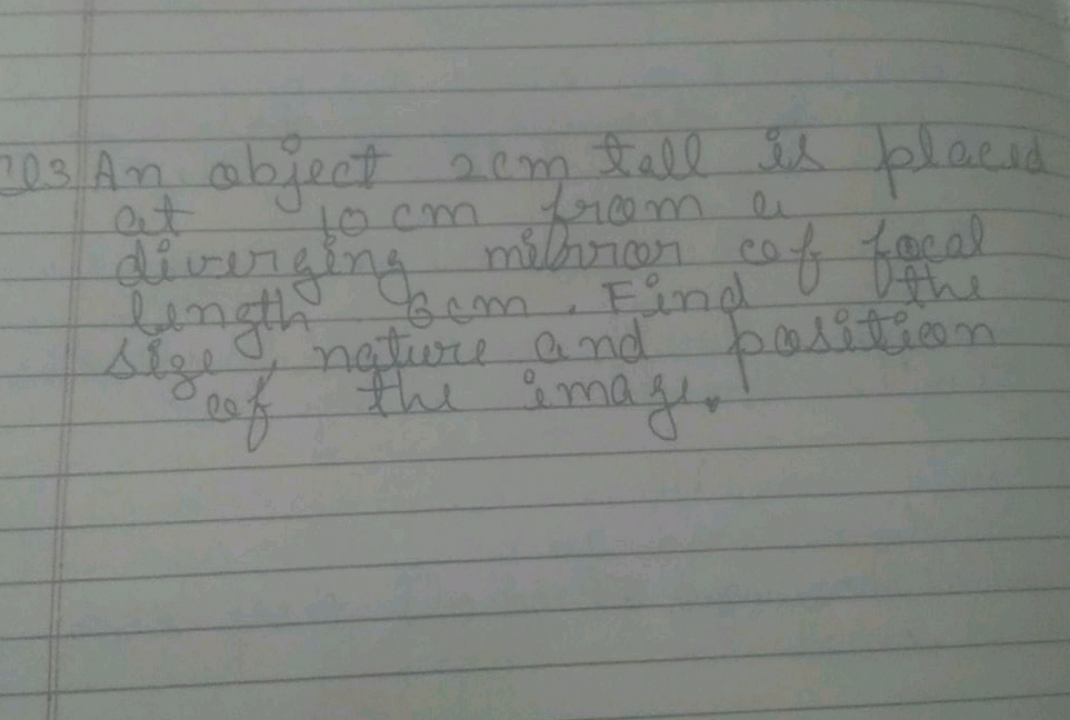 Q3 An object 2cm tall is placed
at 10 cm from a
diverging mirror of focal
length 6cm. Find the
size, nature and position
of the image.